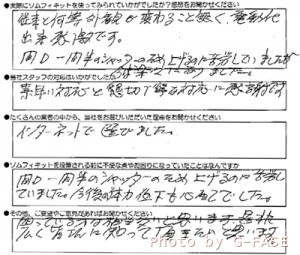 ●実際にソムフィキットを使ってみられていかがでしたか?感想をお聞かせください
従来と何等外観が変わること無く、電動化
出来感激です。
間口一間半のシャッターのため上げるのに苦労していましたが
●当社スタッフの対応はいかがでしたか
素早い対応と懇切丁寧な対応に感謝です
●たくさんの業者の中から、当社をお選びいただいた理由をお聞かせください
インターネットで選びました。
●ソムフィキットを設置される前に不便な点やお困りになっていたことはなんですか
間口一間半のシャッターのため上げるのに苦労し
ていました。今後の体力低下も心配でした。
●その他、ご要望やご意見があればお聞かせください
広く皆さんに知って頂きたいと思います
Photo by G-FACE